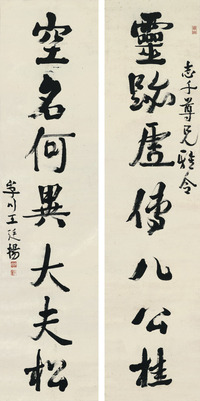 靈跡虛傳八公桂
志千尊兄雅令
空名何異大夫松
王廷揚